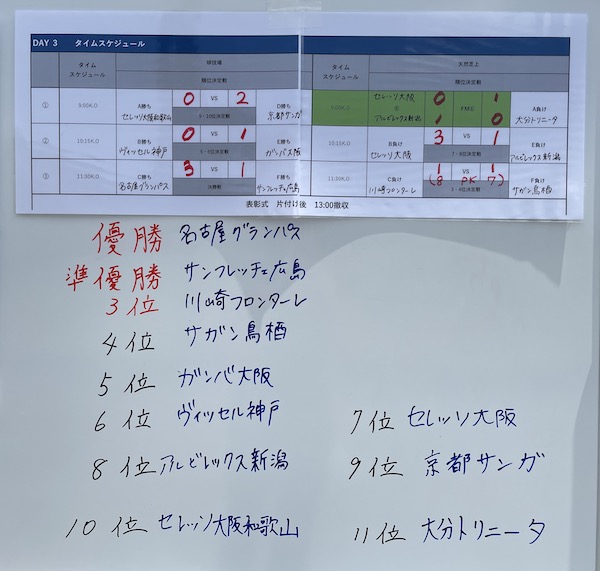 DAY 3 タイムスケジュール
タイム
スケジュール
順位決定戦
① 9:00K.O A勝ち 0 VS 2 D勝ち
セレッソ大阪和歌山 京都サンガ
② 10:15K.O B勝ち 0 VS 1 E勝ち
ヴィッセル神戸 ガンバ大阪
③ 11:30K.O C勝ち 3 VS 1 F勝ち
名古屋グランパス 決勝戦 サンフレッチェ広島
タイム
スケジュール
順位決定戦
9:00K.O セレッソ大阪 0 1 A負け
アルビレックス新潟 1 0 大分トリニータ
10:15K.O B負け 3 VS 1 E負け
セレッソ大阪 アルビレックス新潟
11:30K.O C負け 1 VS 1 F負け
川崎フロンターレ (8 PK 7) サガン鳥栖
表彰式 片付け後 13:00撤収
優勝 名古屋グランパス
準優勝 サンフレッチェ広島
3位 川崎フロンターレ
4位 サガン鳥栖
5位 ガンバ大阪
6位 ヴィッセル神戸
7位 セレッソ大阪
8位 アルビレックス新潟
9位 京都サンガ
10位 セレッソ大阪和歌山
11位 大分トリニータ